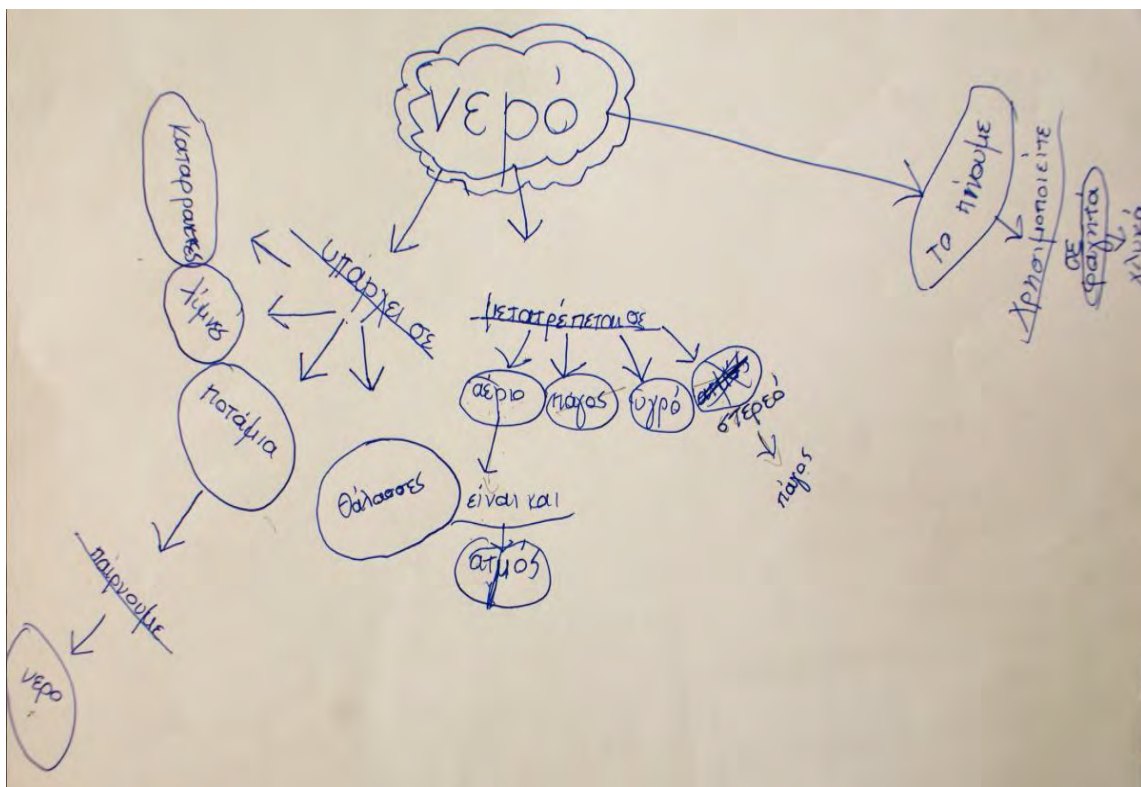 νερό
υπάρχει σε
καταρράκτες
λίμνες
ποτάμια
θάλασσες
παίρνουμε
νερό
μετατρέπεται σε
αέριο
πάγος
υγρό
στερεό
πάγος
είναι και
ατμός
το πήνουμε
χρησιμοποιείτε
σε
φαγητά
γλυκά